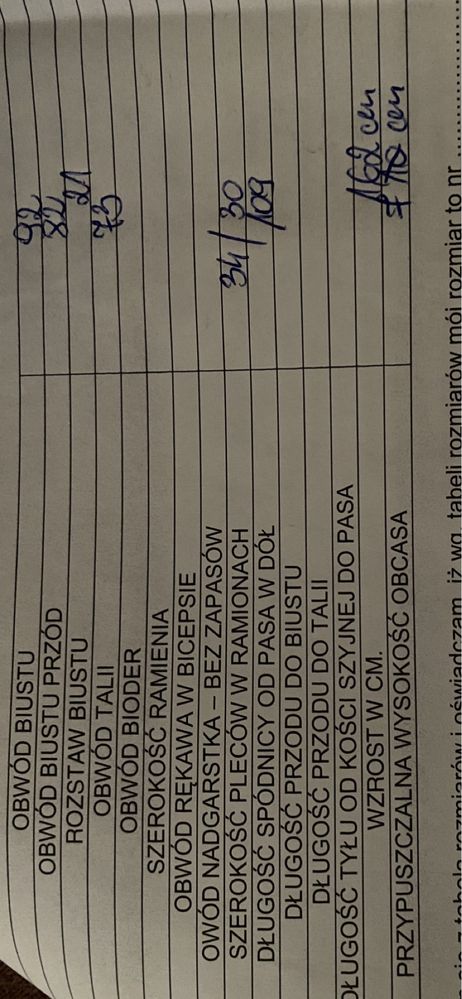 OBWÓD BIUSTU 92
OBWÓD BIUSTU PRZÓD 82
ROZSTAW BIUSTU 21
OBWÓD TALII 73
OBWÓD BIODER
SZEROKOŚĆ RAMIENIA
OBWÓD RĘKAWA W BICEPSIE
OWÓD NADGARSTKA – BEZ ZAPASÓW
SZEROKOŚĆ PLECÓW W RAMIONACH 34/30
DŁUGOŚĆ SPÓDNICY OD PASA W DÓŁ 109
DŁUGOŚĆ PRZODU DO BIUSTU
DŁUGOŚĆ PRZODU DO TALII
DŁUGOŚĆ TYŁU OD KOŚCI SZYJNEJ DO PASA
WZROST W CM. 162 cm
PRZYPUSZCZALNA WYSOKOŚĆ OBCASA cm
tabelą rozmiarów i oświadczam, iż wg. tabeli rozmiarów mój rozmiar to nr